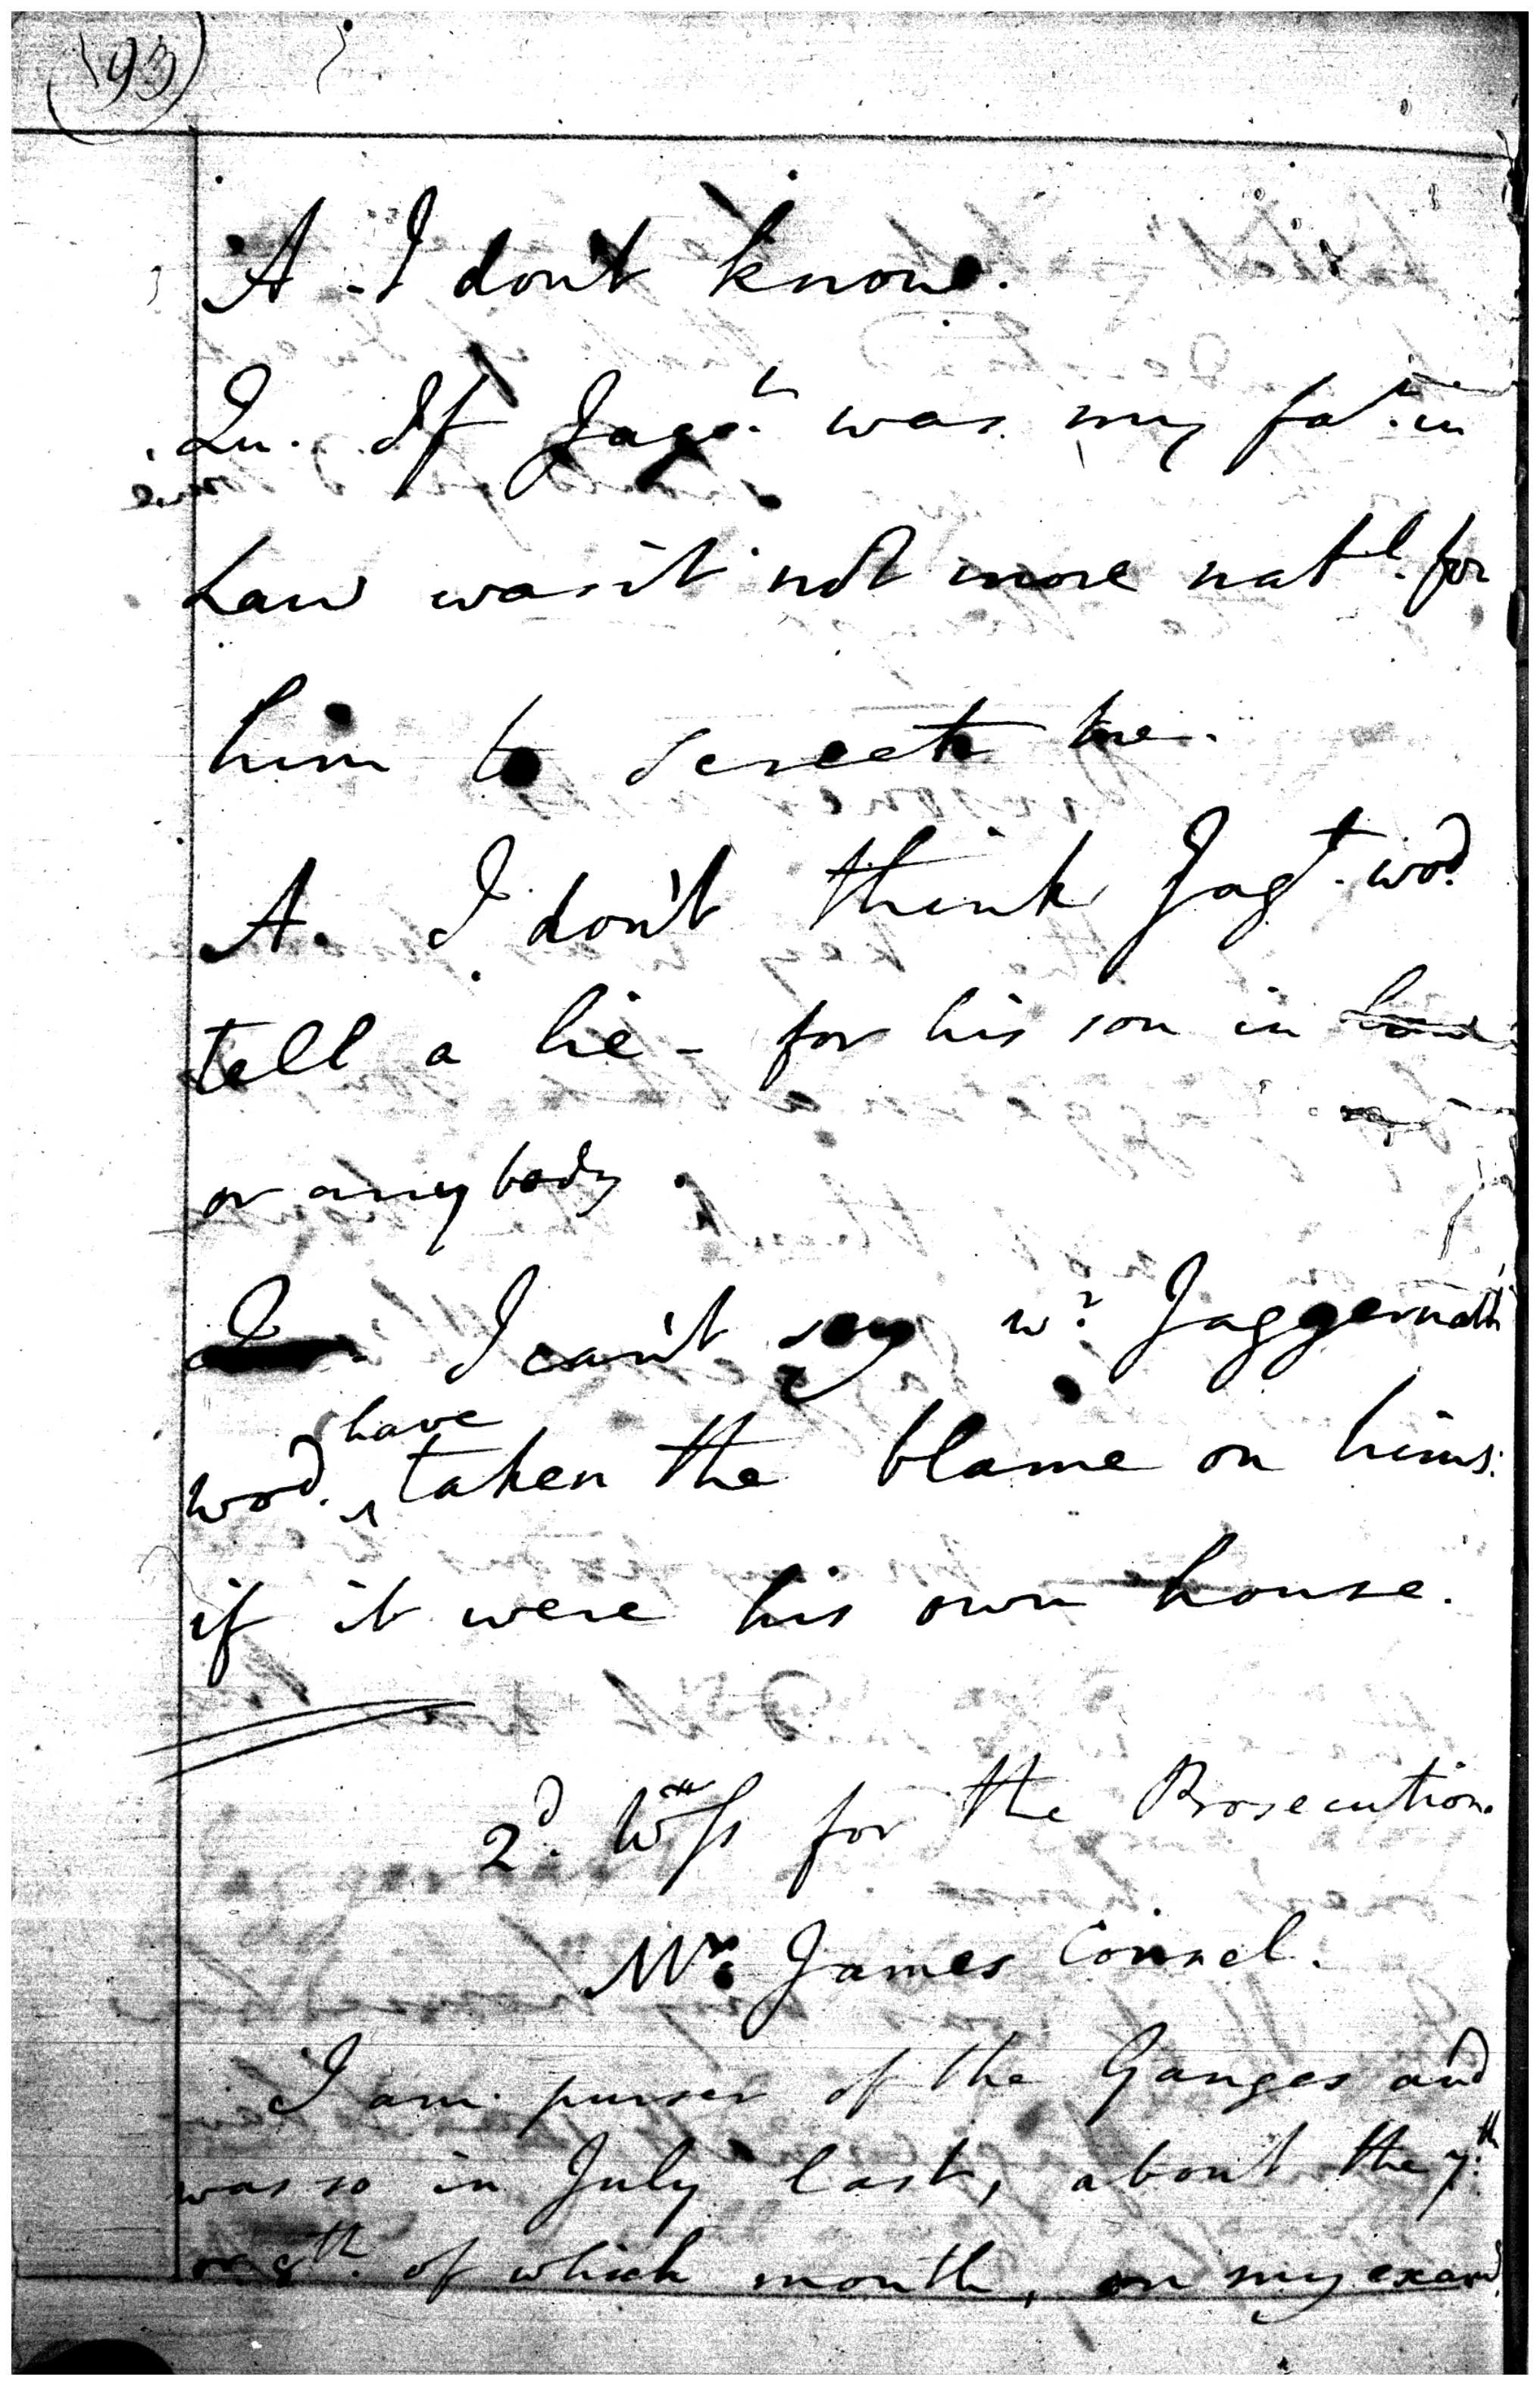 (93)
A - I don't know.
Qu. If Jagg.t was my fat.r in
Law was it not more nat.l for
him to screen me.
A. I don't think Jag.t wod.
tell a lie - for his son in law
or any body.
Qu. I can't say w.r Jaggernath
wod. have taken the blame on hims:
if it were his own house.
2.d Wtss for the Prosecution.
Mr. James Connel.
I am purser of the Ganges and
was so in July last, about the 7.th
or 8.th of which month, on my exam.